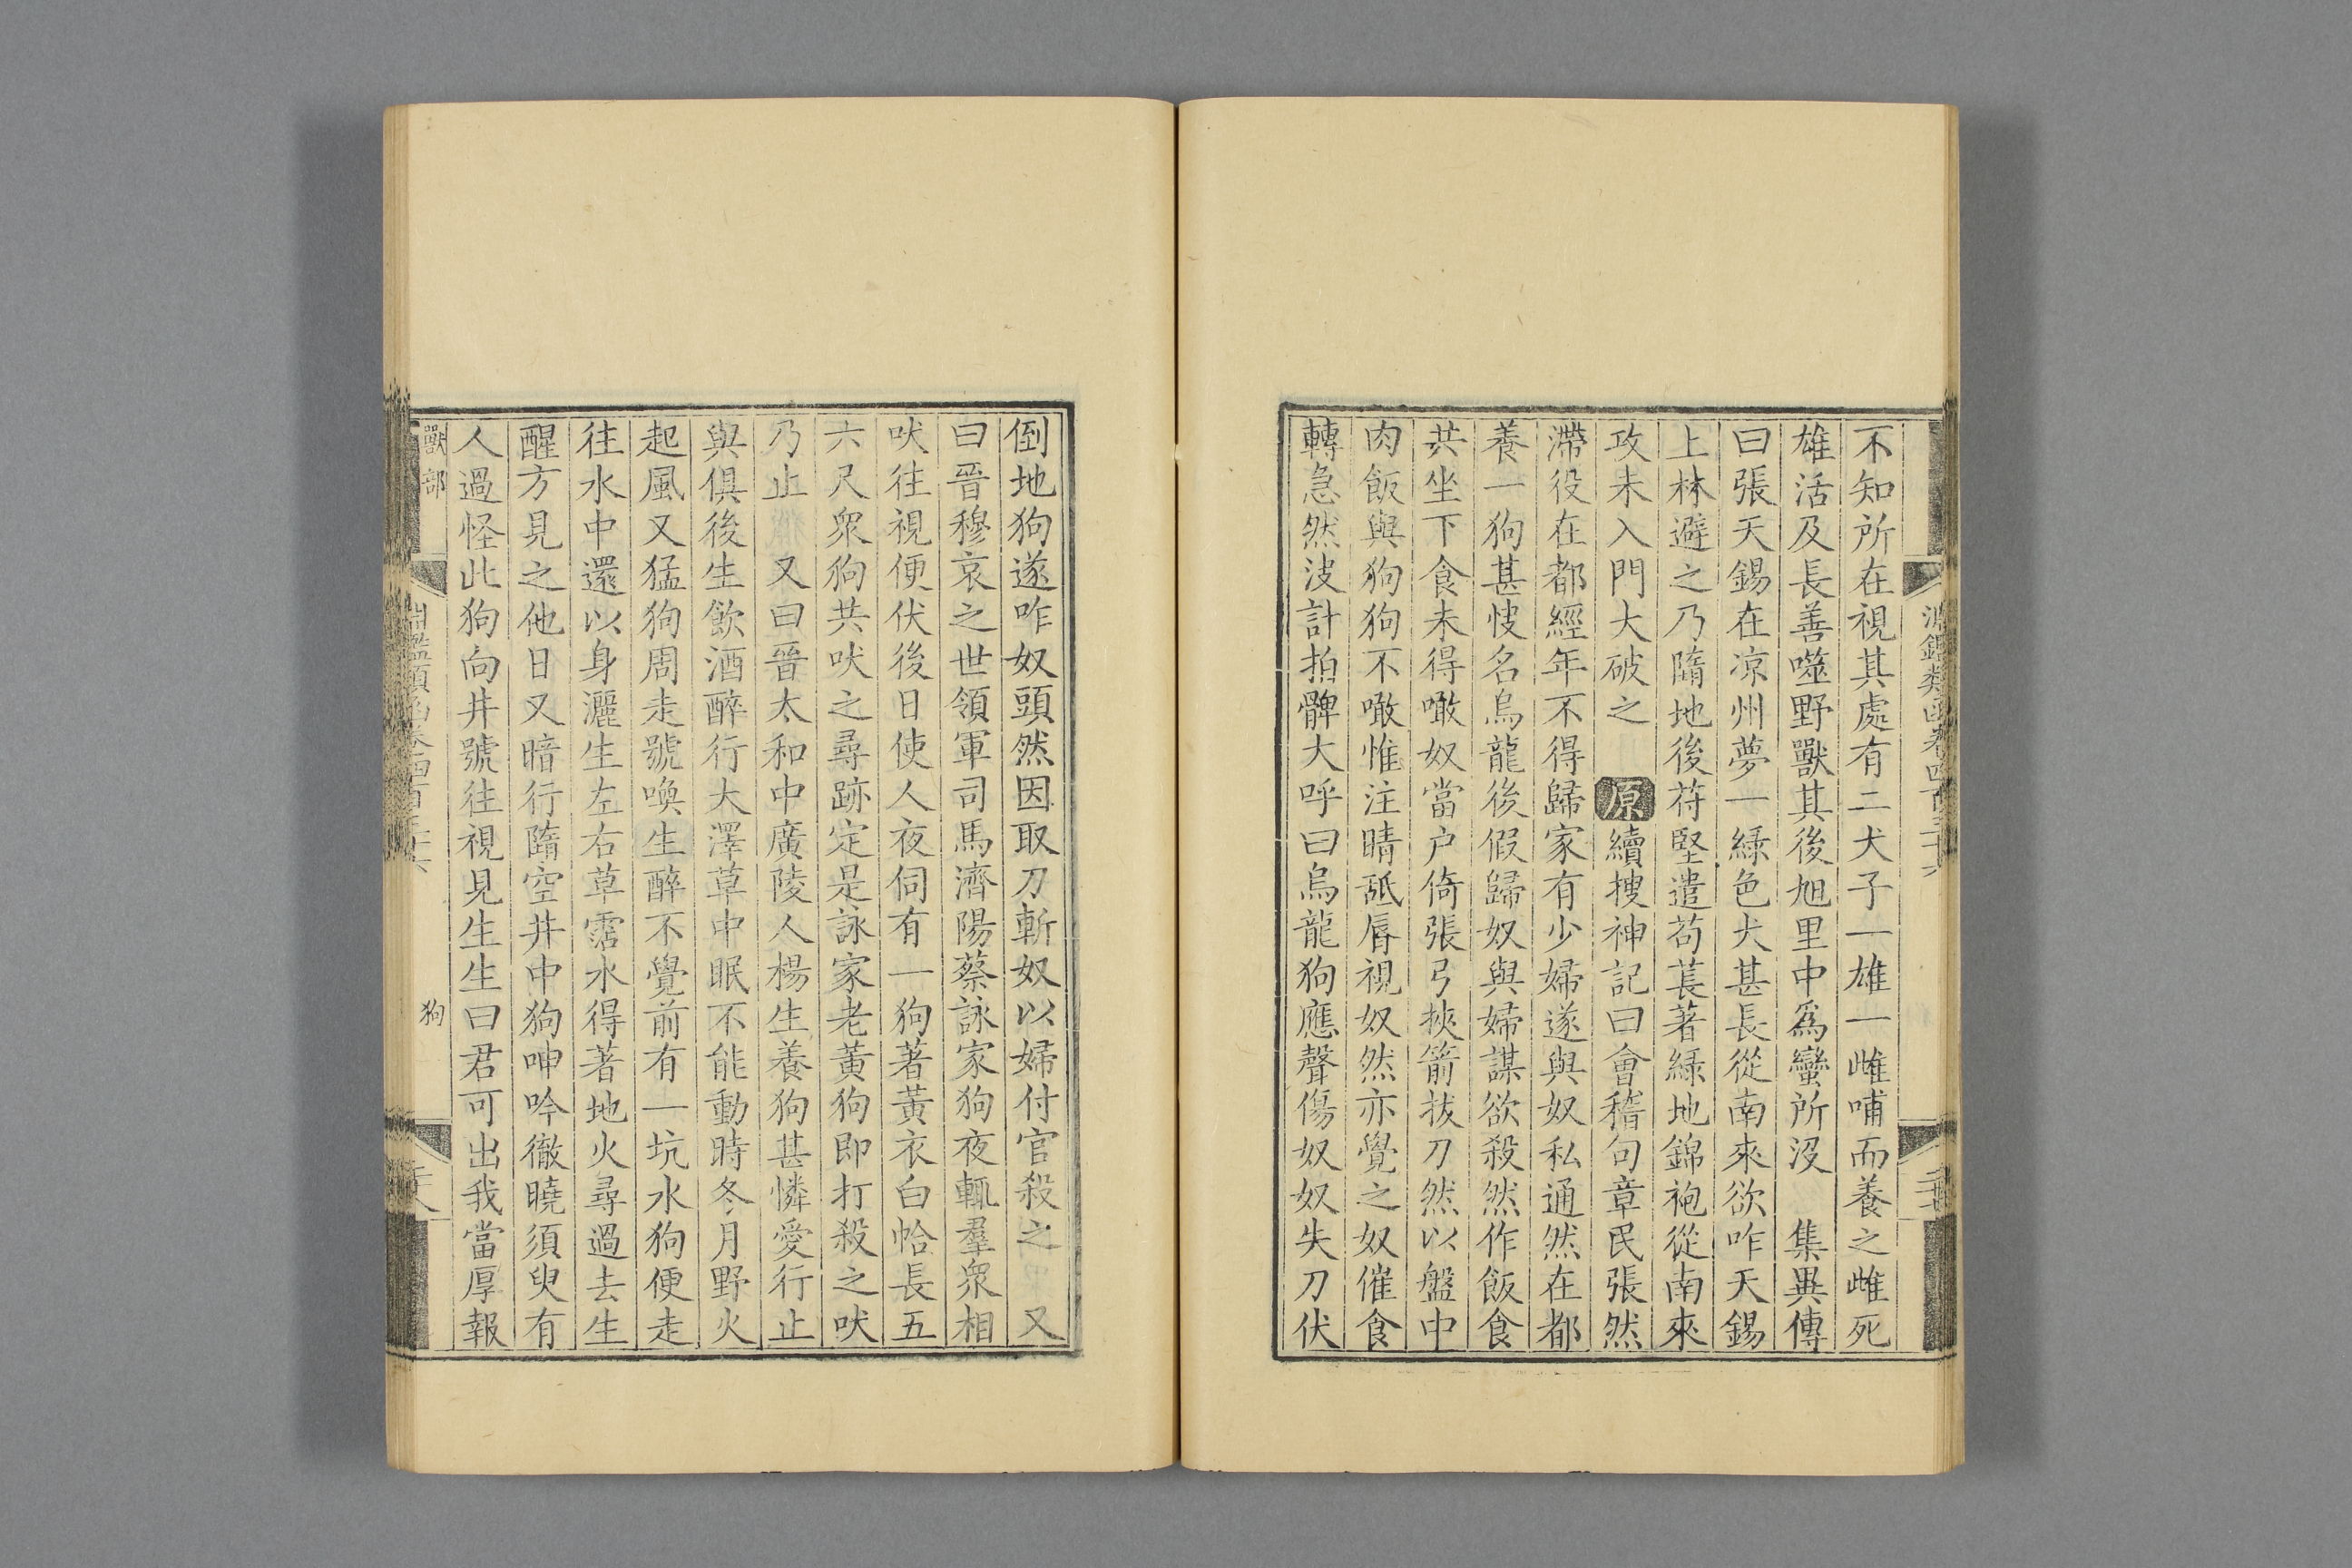 不知所在視其處有二犬子一雄一雌哺而養之雌死
雄活及長善噬野獸其後旭里中爲蠻所沒　集異傳
曰張天錫在凉州夢一綠色犬甚長從南來欲咋天錫
上林避之乃隋地後苻堅遣苟萇著綠地錦袍從南來
攻未入門大破之　原續搜神記曰會稽句章民張然
滯役在都經年不得歸家有少婦遂與奴私通然在都
養一狗甚快名烏龍後假歸奴與婦謀欲殺然作飯食
共坐下食未得噉奴當户倚張弓挾箭拔刀然以盤中
肉飯與狗狗不噉惟注睛舐唇視奴然亦覺之奴催食
轉急然決計拍髀大呼曰烏龍狗應聲傷奴奴失刀伏
倒地狗遂咋奴頭然因取刀斬奴以婦付官殺之　又
曰晉穆哀之世領軍司馬濟陽蔡詠家狗夜輒羣衆相
吠往視便伏後日使人夜伺有一狗著黃衣白恰長五
六尺衆狗共吠之尋跡定是詠家老黃狗即打殺之吠
乃止　又曰晉太和中廣陵人楊生養狗甚憐愛行止
與俱後生飲酒醉行大澤草中眠不能動時冬月野火
起風又猛狗周走號喚生醉不覺前有一坑水狗便走
往水中還以身灑生左右草霑水得著地火尋過去生
醒方見之他日又暗行隋空井中狗呻吟徹曉須臾有
人過怪此狗向井號往視見生生曰君可出我當厚報
獸部
狗